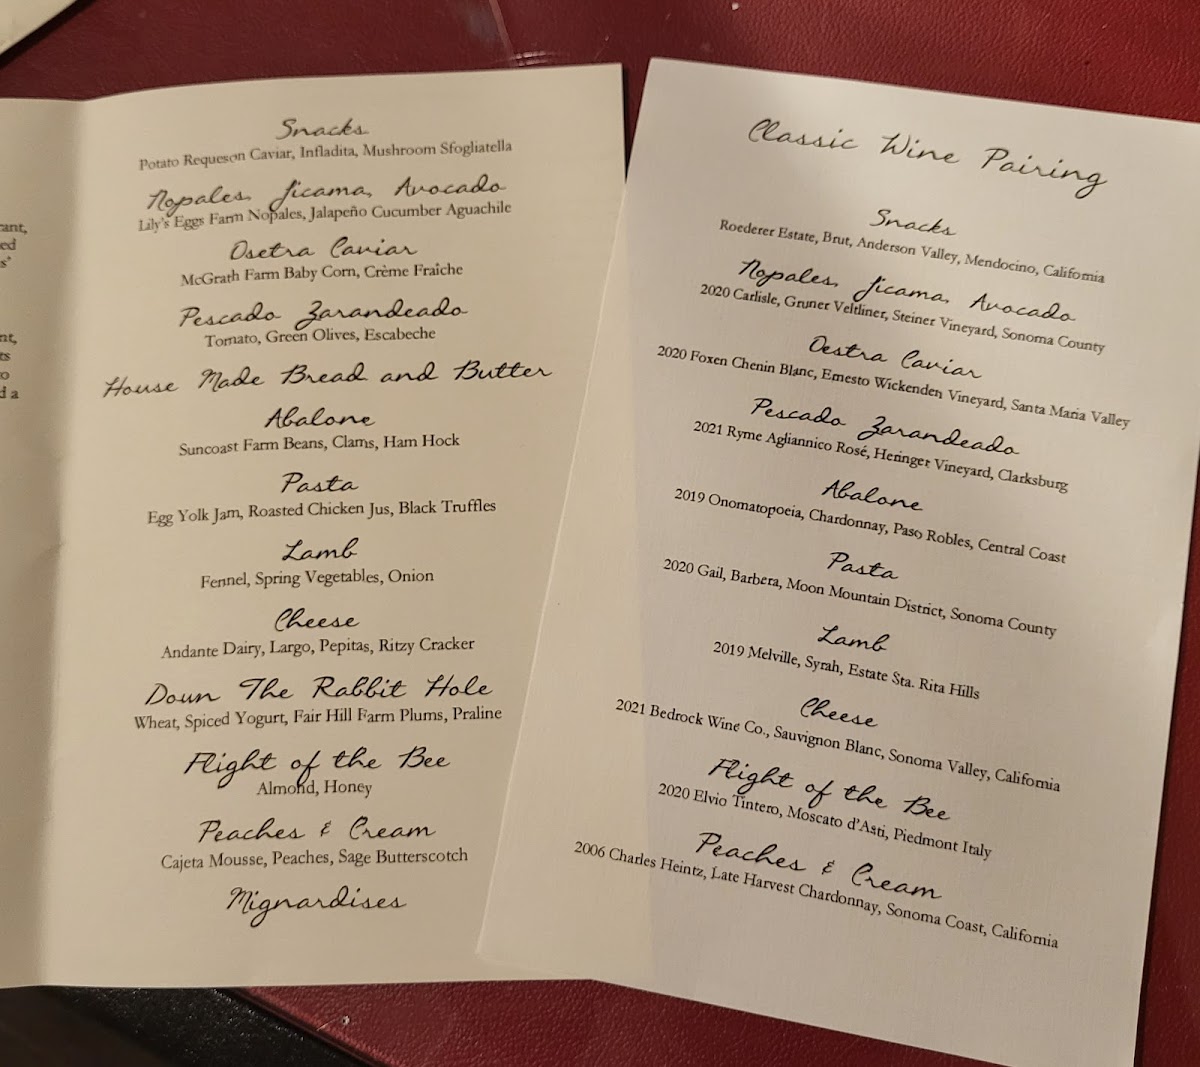 ant,
ed
s'
nt,
ts
o
d a
Snacks
Potato Requeson Caviar, Infladita, Mushroom Sfogliatella
Nopales, Jicama, Avocado
Lily's Eggs Farm Nopales, Jalapeño Cucumber Aguachile
Osetra Caviar
McGrath Farm Baby Corn, Crème Fraîche
Pescado Zarandeado
Tomato, Green Olives, Escabeche
House Made Bread and Butter
Abalone
Suncoast Farm Beans, Clams, Ham Hock
Pasta
Egg Yolk Jam, Roasted Chicken Jus, Black Truffles
Lamb
Fennel, Spring Vegetables, Onion
Cheese
Andante Dairy, Largo, Pepitas, Ritzy Cracker
Down The Rabbit Hole
Wheat, Spiced Yogurt, Fair Hill Farm Plums, Praline
Flight of the Bee
Almond, Honey
Peaches & Cream
Cajeta Mousse, Peaches, Sage Butterscotch
Mignardises
Classic Wine Pairing
Snacks
Roederer Estate, Brut, Anderson Valley, Mendocino, California
Nopales, Jicama, Avocado
2020 Carlisle, Gruner Veltliner, Steiner Vineyard, Sonoma County
Oestra Caviar
2020 Foxen Chenin Blanc, Ernesto Wickenden Vineyard, Santa Maria Valley
Pescado Zarandeado
2021 Ryme Agliannico Rosé, Heringer Vineyard, Clarksburg
Abalone
2019 Onomatopoeia, Chardonnay, Paso Robles, Central Coast
Pasta
2020 Gail, Barbera, Moon Mountain District, Sonoma County
Lamb
2019 Melville, Syrah, Estate Sta. Rita Hills
Cheese
2021 Bedrock Wine Co., Sauvignon Blanc, Sonoma Valley, California
Flight of the Bee
2020 Elvio Tintero, Moscato d'Asti, Piedmont Italy
Peaches & Cream
2006 Charles Heintz, Late Harvest Chardonnay, Sonoma Coast, California